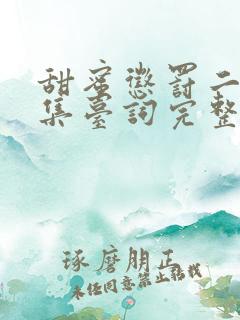 甜蜜懲罰二
集臺詞完整
琢磨朋正
未經同意禁止轉載